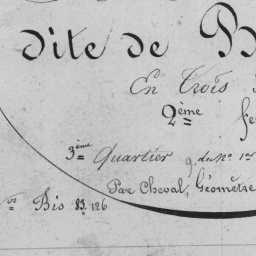 dite de B
En Trois
2ème fe
3ème Quartier du No 1er
Par Cheval, Géomètre
Nos Bis 83. 126